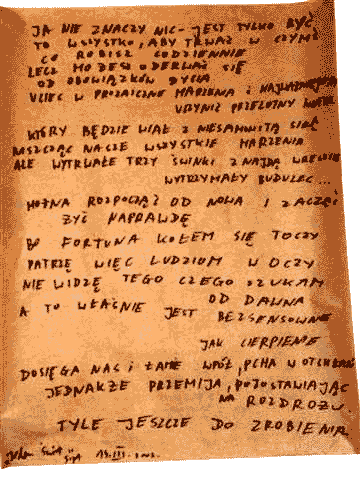 JA NIE ZNACZY NIC - JEST TYLKO BYĆ
TO WSZYSTKO, ABY TRWAĆ W CZYMŚ
CO ROBISZ CODZIENNIE
LECZ MOŻESZ ODERWAĆ SIĘ
OD OBOWIĄZKÓW ŻYCIA
UCIEC W PROZAICZNE MARZENIA I
UCZYNIĆ PRZELOTNY
KTÓRY BĘDZIE WIAŁ Z NIESAMOWITĄ SIŁĄ
NISZCZĄC NASZE WSZYSTKIE MARZENIA
ALE WYTRWAŁE TRZY ŚWINKI ZNAJDĄ WRESZCIE
WYTRZYMAŁY BUDULEC...
MOŻNA ROZPOCZĄĆ OD NOWA I ZACZĄĆ
ŻYĆ NAPRAWDĘ
FORTUNA KOŁEM SIĘ TOCZY
PATRZĘ WIĘC LUDZIOM W OCZY
NIE WIDZĘ TEGO CZEGO SZUKAM
OD DAWNA
A TO WŁAŚNIE JEST BEZSENSOWNE
JAK CIERPIENIE
DOSIĘGA NAS I ŁAMIE WPÓŁ, PCHA W OTCHŁAŃ
JEDNAKŻE PRZEMIJA, POZOSTAWIAJĄC
NA ROZDROŻU.
TYLE JESZCZE DO ZROBIENIA